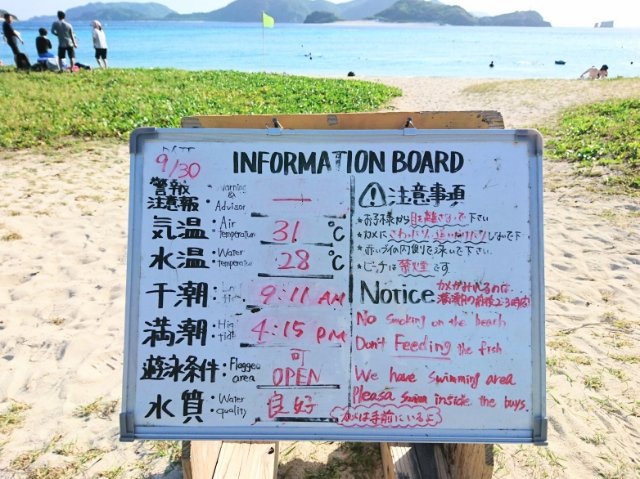 9/30
INFORMATION BOARD
警報 注意報: Warning & Advisor —
気温: Air temperature 31 ℃
水温: Water temperature 28 ℃
干潮: 9:11 AM
満潮: 4:15 PM
遊泳条件: Flagged area 可 OPEN
水質: Water quality 良好
注意事項
*お子様から目を離さないで下さい
*カメにさわったり、追いかけたりしないで下
*赤いブイの内側で泳いで下さい
*ビーチは禁煙です
Notice
カメがみれるのは
満潮の前後2~3時間
No smoking on the beach
Don't Feeding the fish
We have swimming area
Pleasa swim inside the buys.
カメは手前にいるよ